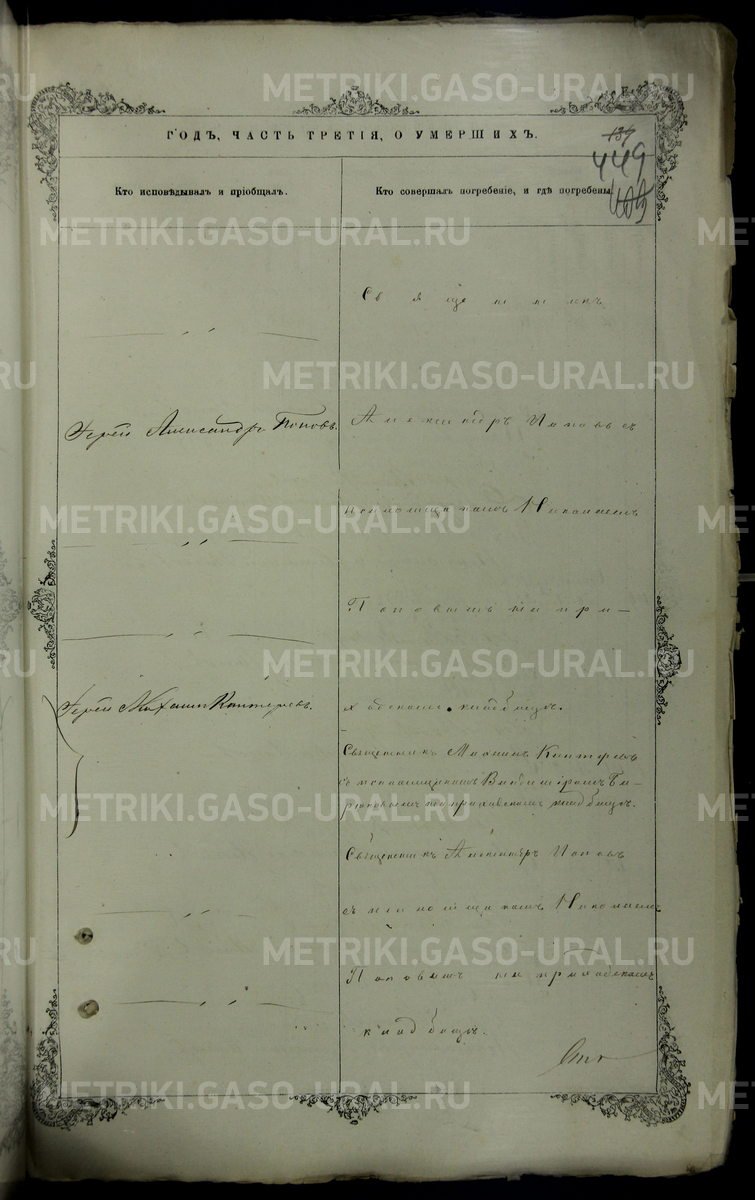 METRIKI.GASO-URAL.RU
ГОДЪ, ЧАСТЬ ТРЕТІЯ, О УМЕРШИХЪ.
449
Кто исповѣдывалъ и пріобщалъ.
Кто совершалъ погребеніе, и гдѣ погребены.
Священникъ
Іерей Александръ Поповъ.
Александръ Поповъ съ
псаломщикомъ Николаемъ
Поповымъ на при-
Іерей Михаилъ
ходскомъ кладбищѣ.
Священникъ
съ псаломщикомъ Владиміромъ Би-
рюковымъ на приходскомъ кладбищѣ.
Священникъ Александръ Поповъ
съ псаломщикомъ Николаемъ
Поповымъ на приходскомъ
кладбищѣ.